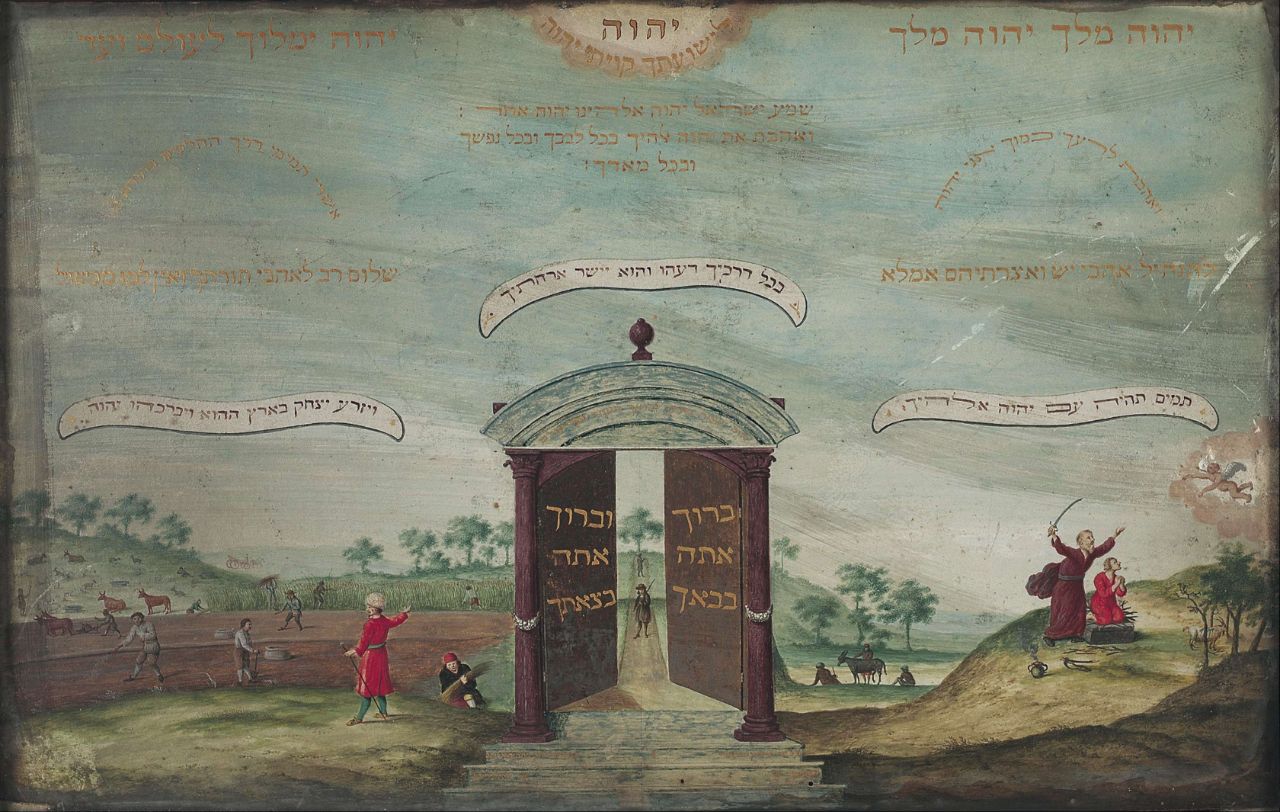 יהוה מלך יהוה מלך
יהוה
לישועתך קויתי יהוה
יהוה ימלוך לעולם ועד
שמע ישראל יהוה אלהינו יהוה אחד :
ואהבת את יהוה אלהיך בכל לבבך ובכל נפשך
ובכל מאדך :
ואהבת לרעך כמוך אני יהוה
אשרי תמימי דרך ההלכים
להנחיל אהבי יש ואצרתיהם אמלא
שלום רב לאהבי תורתך ואין למו מכשול
בכל דרכיך דעהו והוא יישר ארחתיך
תמים תהיה עם יהוה אלהיך
ויזרע יצחק בארץ ההוא ויברכהו יהוה
ברוך
אתה
בבאך
וברוך
אתה
בצאתך